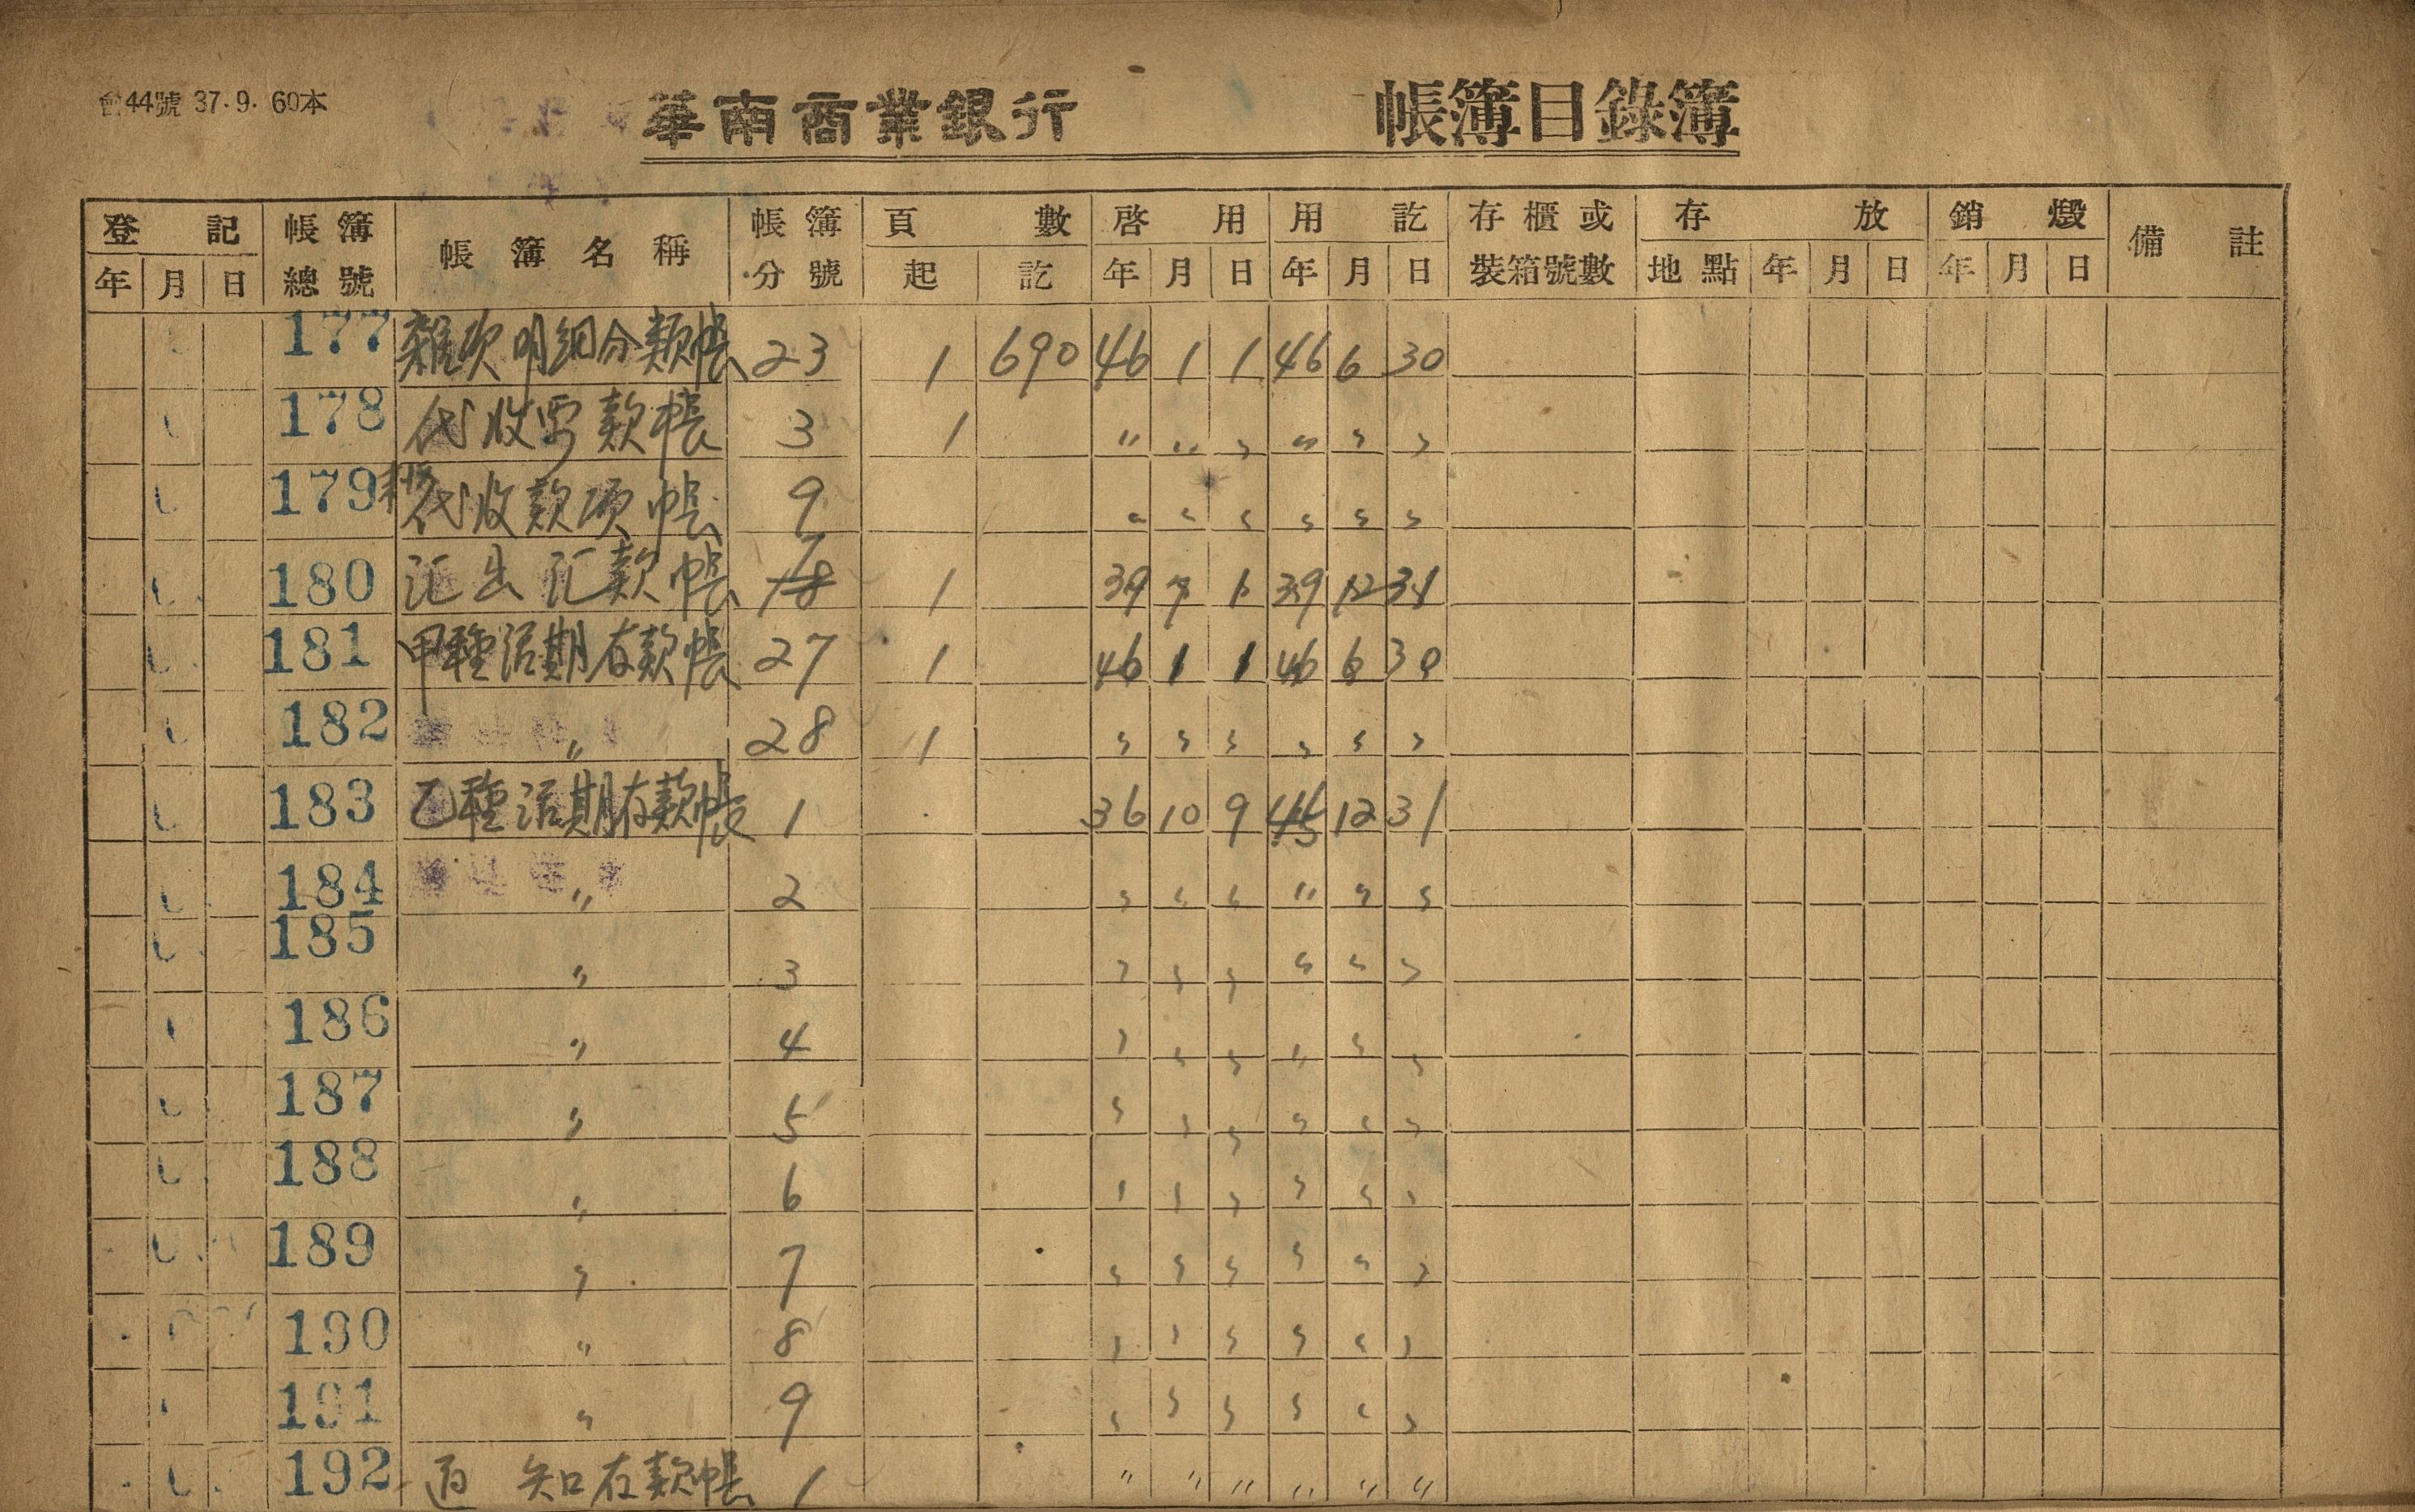 會44號 37.9. 60本
華南商業銀行 帳簿目錄簿
登記 帳簿總號 帳簿名稱 帳簿分號 頁數 啓用 用訖 存櫃或裝箱號數 存放 銷燬 備註
年 月 日 起 訖 年 月 日 年 月 日 地點 年 月 日 年 月 日
177 雜項明細分類帳 23 1 690 46 1 1 46 6 30
178 代收票款帳 3 1 〃 〃 〃 〃 〃 〃
179 代收款項帳 9 〃 〃 〃 〃 〃 〃
180 汇出汇款帳 1 39 7 1 39 12 31
181 甲種活期存款帳 27 1 46 1 1 46 6 30
182 〃 28 1 〃 〃 〃 〃 〃 〃
183 乙種活期存款帳 1 36 10 9 45 12 31
184 〃 2 〃 〃 〃 〃 〃 〃
185 〃 3 〃 〃 〃 〃 〃 〃
186 〃 4 〃 〃 〃 〃 〃 〃
187 〃 5 〃 〃 〃 〃 〃 〃
188 〃 6 〃 〃 〃 〃 〃 〃
189 〃 7 〃 〃 〃 〃 〃 〃
190 〃 8 〃 〃 〃 〃 〃 〃
191 〃 9 〃 〃 〃 〃 〃 〃
192 通知存款帳 1 〃 〃 〃 〃 〃 〃